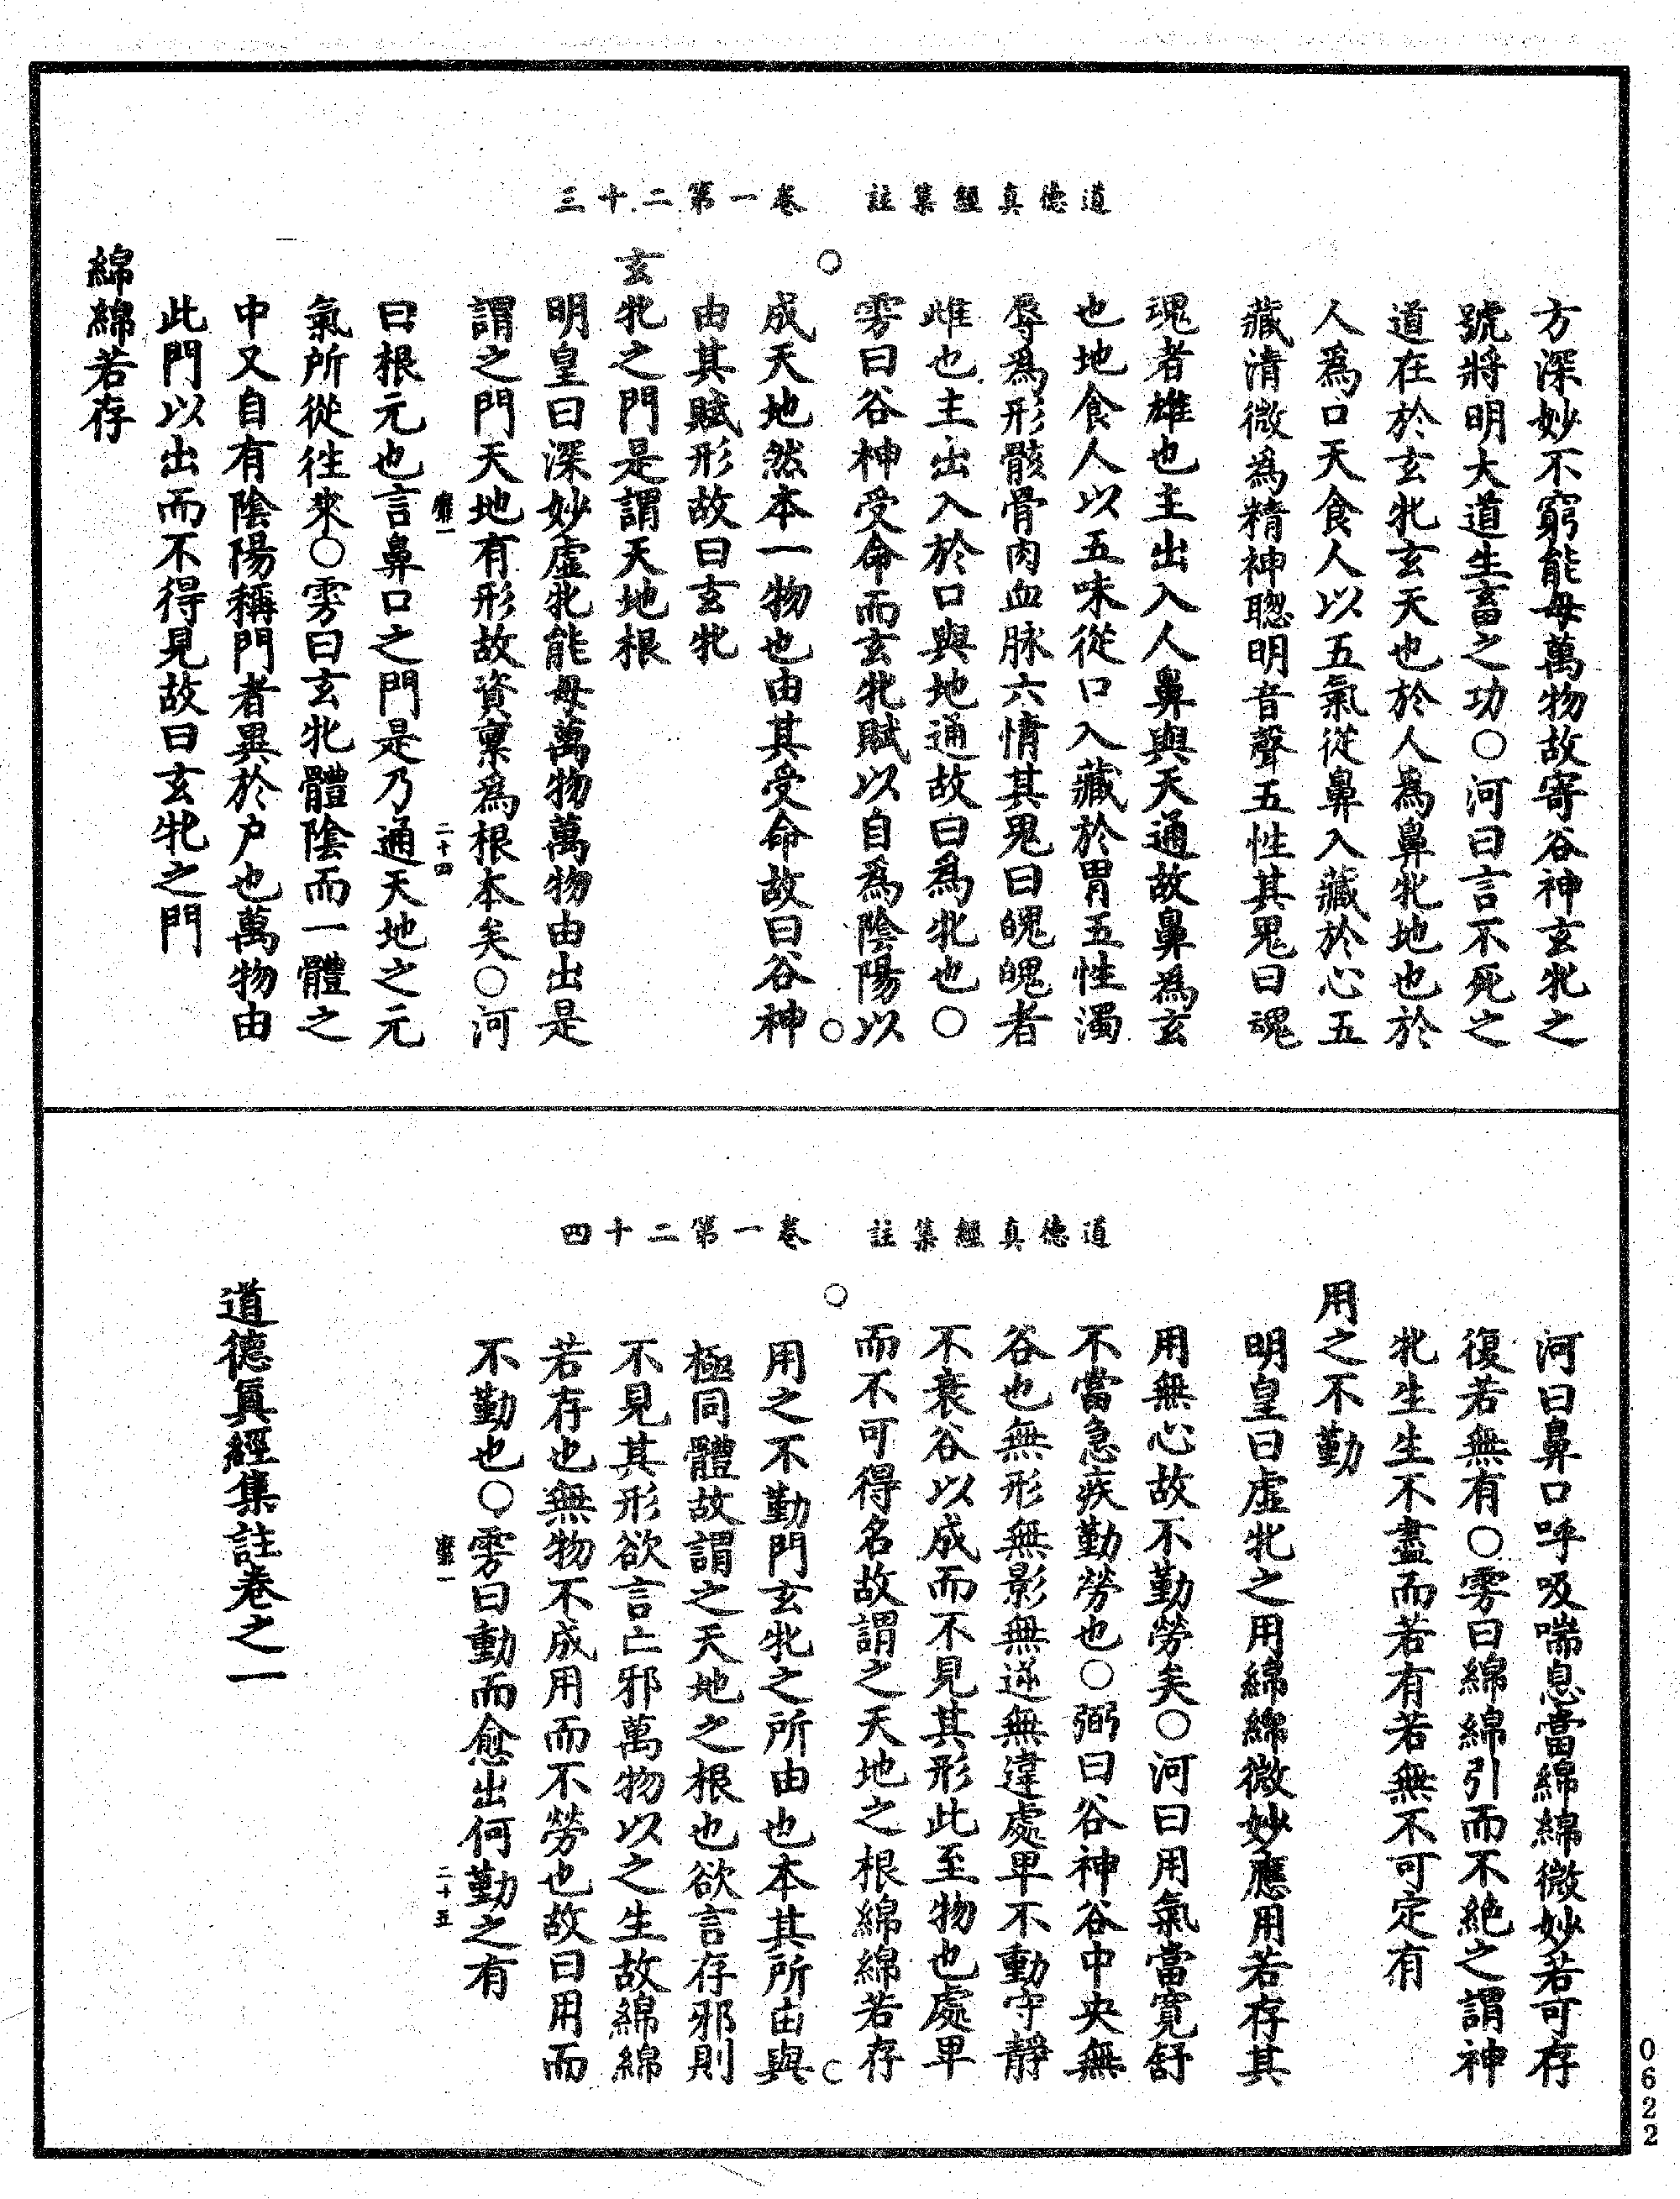 道德真經集註　卷一第二十三
方深妙不窮能母萬物故寄谷神玄牝之
號將明大道生畜之功○河曰言不死之
道在於玄牝玄天也於人爲鼻牝地也於
人爲口天食人以五氣從鼻入藏於心五
藏清微爲精神聰明音聲五性其鬼曰魂
魂者雄也主出入人鼻與天通故鼻爲玄
也地食人以五味從口入藏於胃五性濁
辱爲形骸骨肉血脉六情其鬼曰魄魄者
雌也主出入於口與地通故曰爲牝也○
雱曰谷神受命而玄牝賦以自爲陰陽以
成天地然本一物也由其受命故曰谷神
由其賦形故曰玄牝
玄牝之門是謂天地根
明皇曰深妙虛牝能母萬物萬物由出是
謂之門天地有形故資稟爲根本矣○河
二十四
曰根元也言鼻口之門是乃通天地之元
氣所從往來○雱曰玄牝體陰而一體之
中又自有陰陽稱門者異於户也萬物由
此門以出而不得見故曰玄牝之門
綿綿若存
道德真經集註　卷一第二十四
河曰鼻口呼吸喘息當綿綿微妙若可存
復若無有○雱曰綿綿引而不絶之謂神
牝生生不盡而若有若無不可定有
用之不勤
明皇曰虛牝之用綿綿微妙應用若存其
用無心故不勤勞矣○河曰用氣當寬舒
不當急疾勤勞也○弼曰谷神谷中央無
谷也無形無影無逆無違處卑不動守靜
不衰谷以成而不見其形此至物也處卑
而不可得名故謂之天地之根綿綿若存
用之不勤門玄牝之所由也本其所由與
極同體故謂之天地之根也欲言存邪則
不見其形欲言亡邪萬物以之生故綿綿
若存也無物不成用而不勞也故曰用而
不勤也○雱曰動而愈出何勤之有
二十五
道德眞經集註卷之一
0622